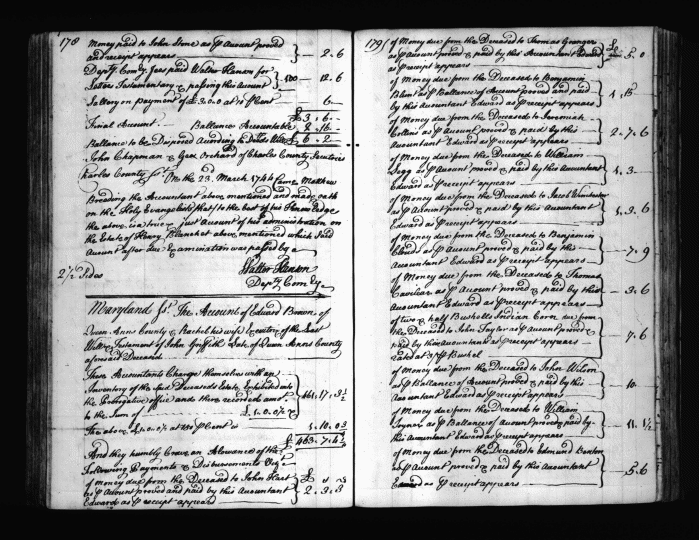 178
Money paid to John Stone as P Account proved
and receipt appears — 2. 6
Depty Comry fees paid Walter Hanson for
Letters Testamentary & passing this Account 500 — 12. 6
Sallery on payment of £3.0.0 at 10 P Cent — 6
£ 3. 6. -
Finial Account Ballance Accountable 2. 16.
Ballance to be Disposed According to Deceds Will £ 6. 2
John Chapman & Orchard of Charles County Sureties
Charles County Ss. On the 23. March 1744 Came Matthew
Breeding the Accountant above mentioned and made oath
on the Holy Evangelists that to the best of his Knowledge
the above is a true & just Account of his administration on
the Estate of Henry Blanket above mentioned which said
Account after due Examination was passed by
Walter Hanson
Depty Com
2 1/2 Sides
Maryland Ss. The Account of Edward Brown of
Queen Anns County & Rachel his wife Executrix of the Last
Will & Testament of John Griffith Late of Queen Anns County
aforesaid Deceased
These Accountants Charge themselves with an
Inventory of the said Deceaseds Estate Exhibited into
the Prerogative office and there recorded amot
to the Sum of
The above £1.0.0 1/2 at P Cent is 1. 10. 0
£ 463. 7. 6
And they humbly Crave an Allowance of the
Following Payments & Disbursements Viz
of money due from the Deceased to John Hart
as P Account proved and paid by this Accountant
Edward as P receipt appears 2. 3. 3
179
of Money due from the Deceased to Thomas Granger
as P Account proved & paid by this Accountant Edward
as P receipt appears — 5. 0
of Money due from the Deceased to Benjamin
Blunt as P Ballance of Account proved and paid
by this Accountant Edward as P receipt appears
of Money due from the Deceased to Jeremiah
Collins as P Account proved & paid by this
Accountant Edward as P receipt appears 2. 7. 6
of Money due from the Deceased to William
Legg as P Account proved & paid by this Accountant
Edward as P receipt appears 1. 3.
of Money due from the Deceased to Jacob Winchester
as P Account proved & paid by this Accountant
Edward as P receipt appears 1. 3. 6
of Money due from the Deceased to Benjamin
Cloud as P Account proved & paid by the
Accountant Edward as P receipt appears 7. 9
of Money due from the Deceased to Thomas
as P Account proved & paid by this
Accountant Edward as P receipt appears — 3. 6
of two & half Bushells Indian Corn due from
the Deceased to John Taylor as P Account proved &
paid by this Accountant as P receipt appears 7. 6
rated at 3/ P Bushel
of Money due from the Deceased to John Wilson
as P Ballance of Account proved & paid by this
Accountant Edward as P receipt appears 10.
of Money due from the Deceased to William
Joyner as P Ballance of Account proved & paid by
this Accountant Edward as P receipt appears — 11. 1/2
of Money due from the Deceased to Edmund Benton
as P Account proved & paid by this Accountant 5. 6
Edward as P receipt appears